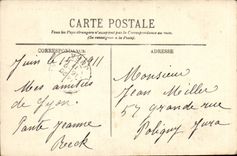 CARTE POSTALE
Tous les Pays étrangers n'acceptent pas la Correspondance au recto.
(Se renseigner à la Poste)
CORRESPONDANCE
ADRESSE
Juin le 15/9 1911
Mes amitiés
de Lyon
Tante Jeanne
Monsieur
Jean Meiller
57 grande rue
Poligny Jura